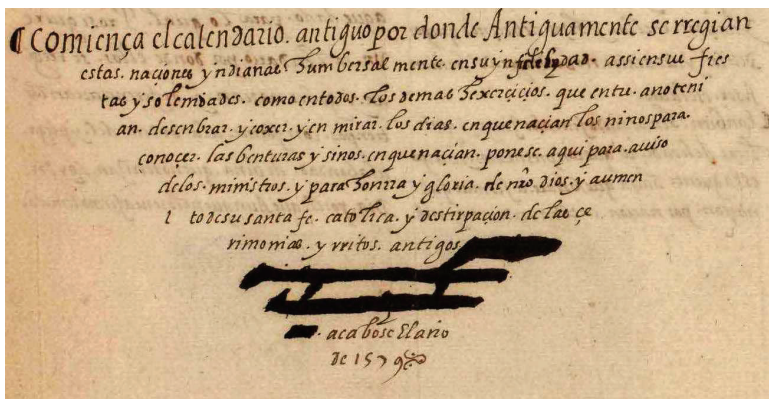 ¶ Comiença el calendario. antiguo por donde Antiquamente se rregian
estas. naçiones yndianas humbersalmente. en su ynfidelydad. assi en sus fies
tas y solenidades. como en todos. los demas hexerçiçios. que en tu. ano teni
an. desenbrar. y coxer. y en mirar. los dias. en que naçian los ninos para.
conoçer. las benturas y sinos. en que naçian. ponese. aqui para. auiso
delos. ministros. y para honrra y gloria. de nro. dios. y aumen
to de su santa fe. catolica. y destirpaçion. de las çe
rimonias. y rritos. antigos
. acabose El año
de 1579